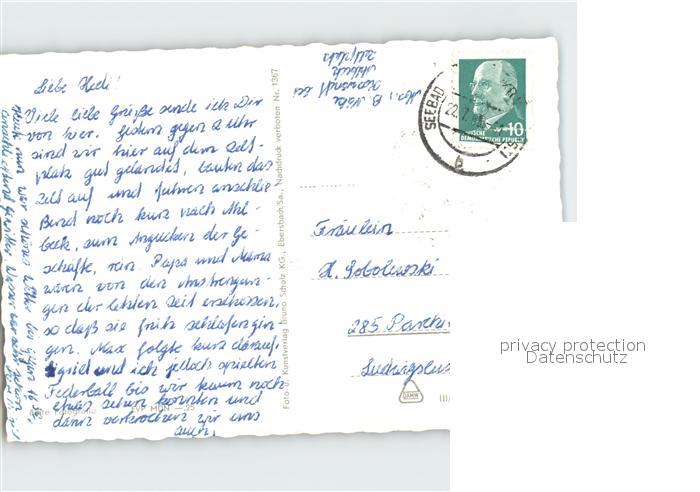 Liebe Hedi!
Viele liebe Grüße sende ich Dir
von hier. Gestern gegen 2 Uhr
sind wir hier auf dem Zelt-
platz gut gelandet, bauten das
Zelt auf und fuhren anschlie
ßend noch kurz nach Ahl-
beck, zum Angucken der Ge-
schäfte, rein. Papa und Mama
waren von den Anstrengun-
gen der letzten Zeit erschossen,
so daß sie früh schlafen gin-
gen. Max folgte kurz darauf.
Sigrid und ich jedoch spielten
Federball bis wir kaum noch
etwas sehen konnten und
dann verkrochen wir uns
auch.
Echte Fotografie EVP MDN —.25
Foto u. Kunstverlag Bruno Scholz KG., Ebersbach/Sa., Nachdruck verboten Nr. 1367
Ahlbeck
Zeltplatz
SEEBAD
22.7.
b
DEUTSCHE
DEMOKRATISCHE REPUBLIK
10
Fräulein
H. Sobolewski
285 Parchi
Ludwigslus
DAMW
privacy protection
Datenschutz